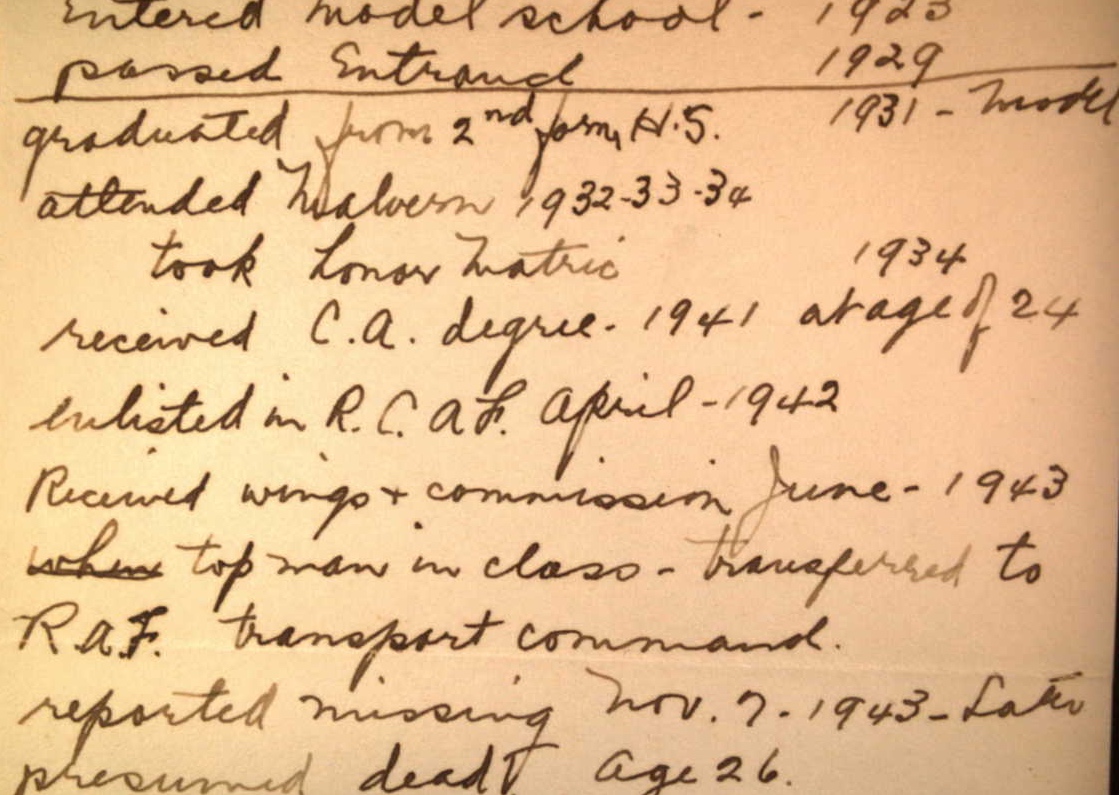 Entered model school - 1923
passed Entrance 1929
graduated from 2nd form H.S. 1931 - Model
attended Malvern 1932-33-34
took honor matric 1934
received C.A. degree - 1941 at age of 24
enlisted in R.C.A.F. April - 1942
Received wings + commission June - 1943
when top man in class - transferred to
R.A.F. transport command.
reported missing Nov. 7 - 1943 - Later
presumed dead Age 26.